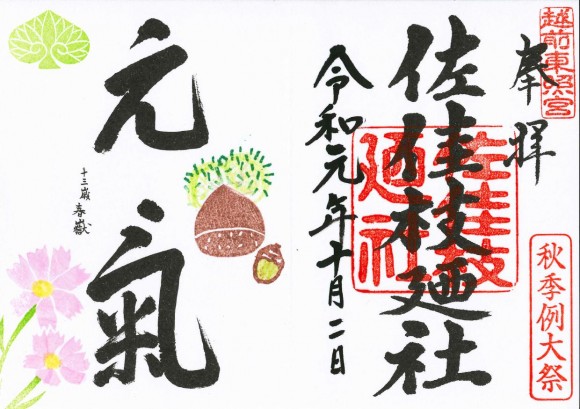 越前東照宮
奉拝
秋季例大祭
佐佳枝廼社
佐佳枝
廼社
令和元年十月二日
元氣
十三歳 春嶽